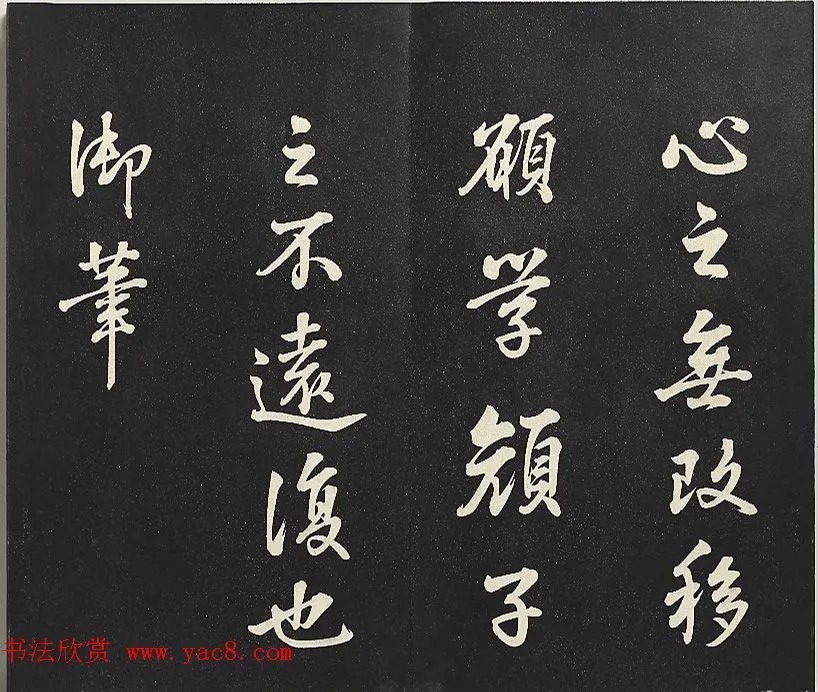 心之無改移
願学顔子
之不遠復也
御筆
书法欣赏 www.yac8.com